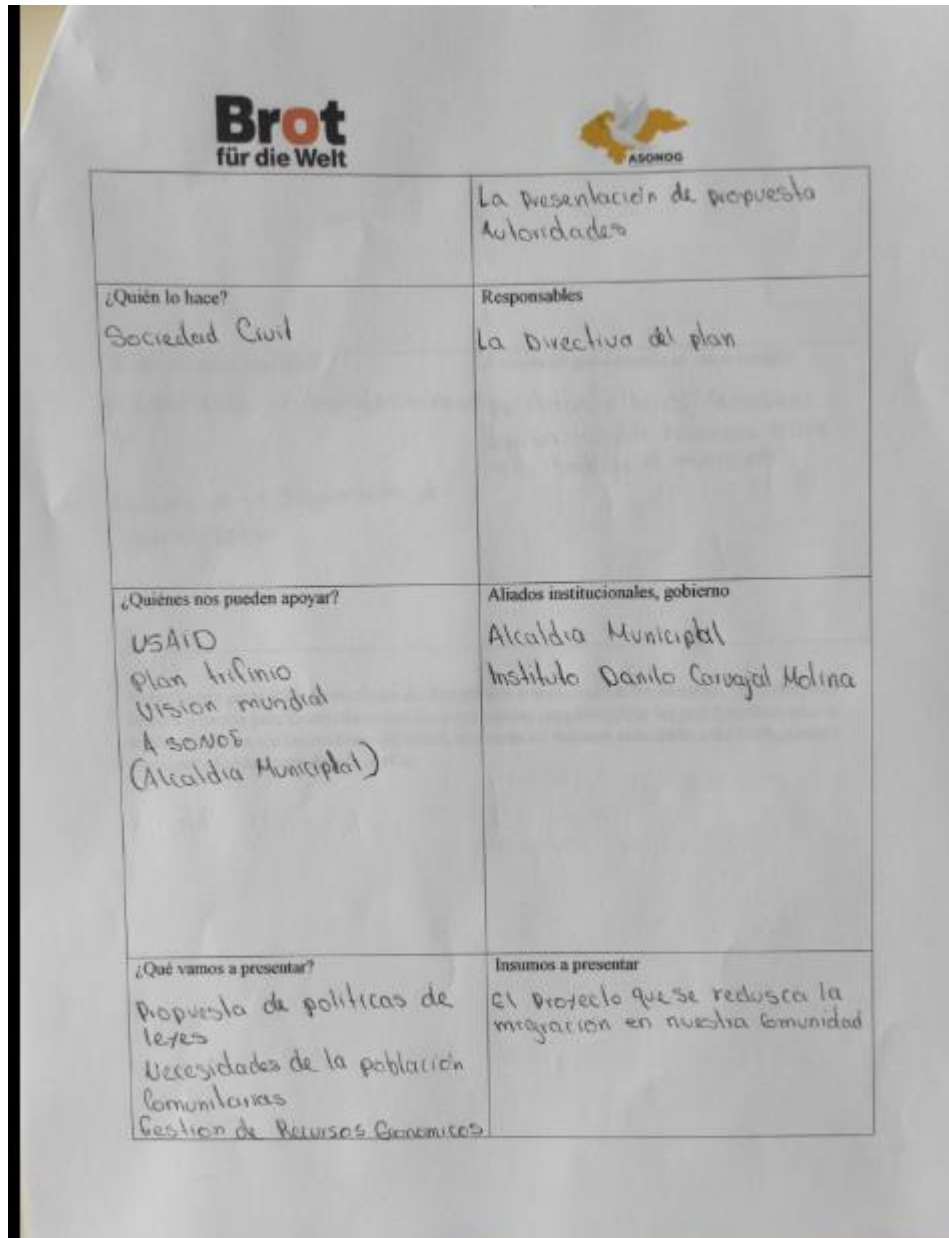 Brot
für die Welt
ASONOG
La Presentación de propuesta
Autoridades
¿Quién lo hace?
Sociedad Civil
Responsables
La Directiva del plan
¿Quiénes nos pueden apoyar?
USAID
Plan trifinio
Vision mundial
ASONOE
(Alcaldia Municipal)
Aliados institucionales, gobierno
Alcaldia Municipal
Instituto Danilo Carvajal Molina
¿Qué vamos a presentar?
Propuesta de politicas de
leyes
Necesidades de la población
Comunitarias
Gestion de Recursos Economicos
Insumos a presentar
El Proyecto que se redusca la
migración en nuestra Comunidad